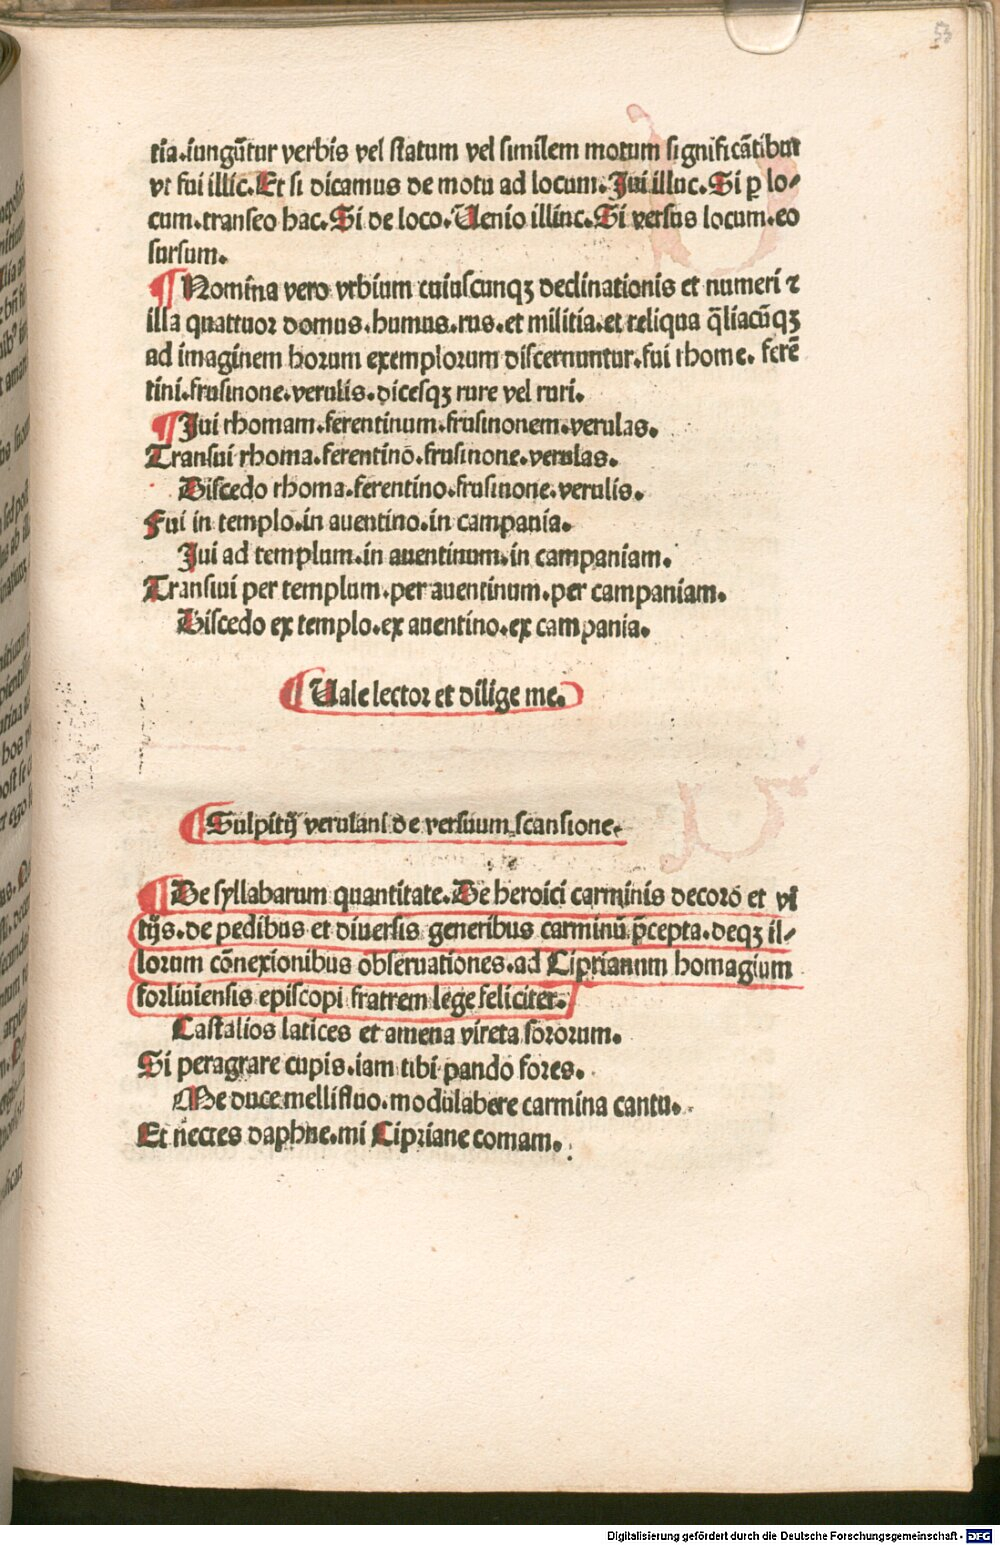 53
tia.iungūtur verbis vel statum vel similem motum significātibus
vt fui illic.Et si dicamus de motu ad locum.Jui illuc.Si ꝑ lo⸗
cum.transeo hac.Si de loco.Uenio illinc.Si versus locum.eo
sursum.
¶ Nomina vero vrbium cuiuscunqꝫ declinationis et numeri ⁊
illa quattuor domus.humus.rus.et militia.et reliqua q̄liacūqꝫ
ad imaginem horum exemplorum discernuntur.fui rhome. ferē
tini.frusinone.verulis.dicesqꝫ rure vel ruri.
¶ Jui rhomam.ferentinum.frusinonem.verulas.
Transui rhoma.ferentino.frusinone.verulas.
Discedo rhoma.ferentino.frusinone.verulis.
Fui in templo.in auentino.in campania.
Jui ad templum.in auentinum.in campaniam.
Transiui per templum.per auentinum.per campaniam.
Discedo ex templo.ex auentino.ex campania.
¶ Uale lector et dilige me.
¶ Sulpitij verulani de versuum scansione.
¶ De syllabarum quantitate.De heroici carminis decoro et vi
tijs.de pedibus et diuersis generibus carminū p̄cepta.deqꝫ il⸗
lorum cōnexionibus obseruationes.ad Ciprianum homagium
forliuiensis episcopi fratrem lege feliciter.
Castalios latices et amena vireta sororum.
Si peragrare cupis.iam tibi pando fores.
Me duce mellifluo.modulabere carmina cantu.
Et nectes daphne.mi Cipriane comam.
Digitalisierung gefördert durch die Deutsche Forschungsgemeinschaft - DFG